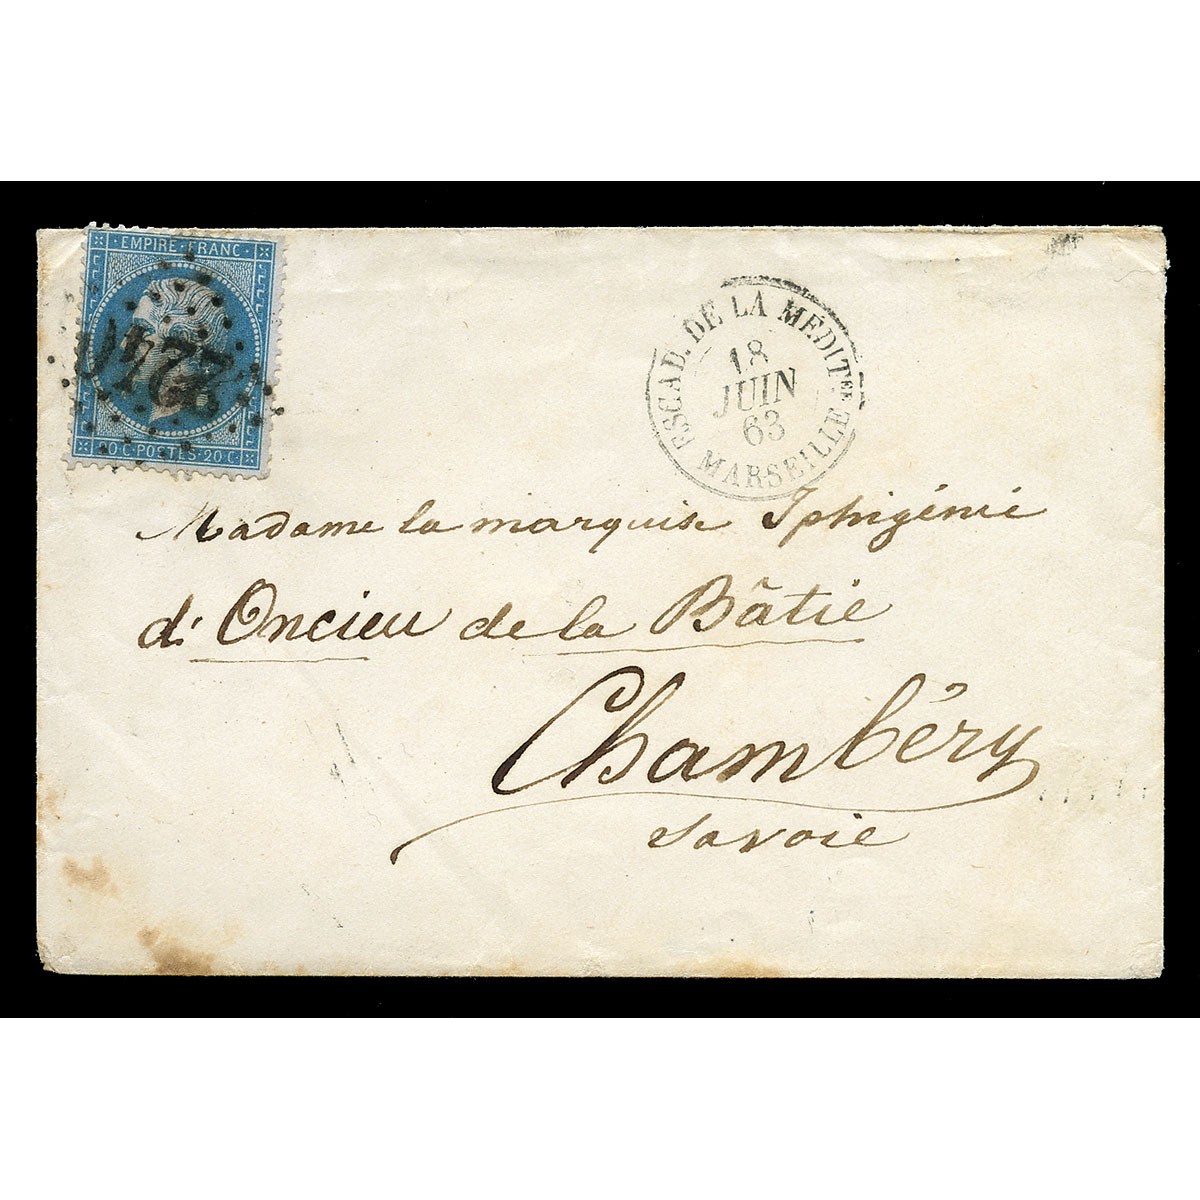 EMPIRE · FRANC ·
2240
20 · C · POSTES · 20 · C ·
ESCAD. DE LA MÉDIT^EE
18
JUIN
63
MARSEILLE
Madame la marquise Iphigénie
d'Oncieu de la Bâtie
Chambéry
Savoie